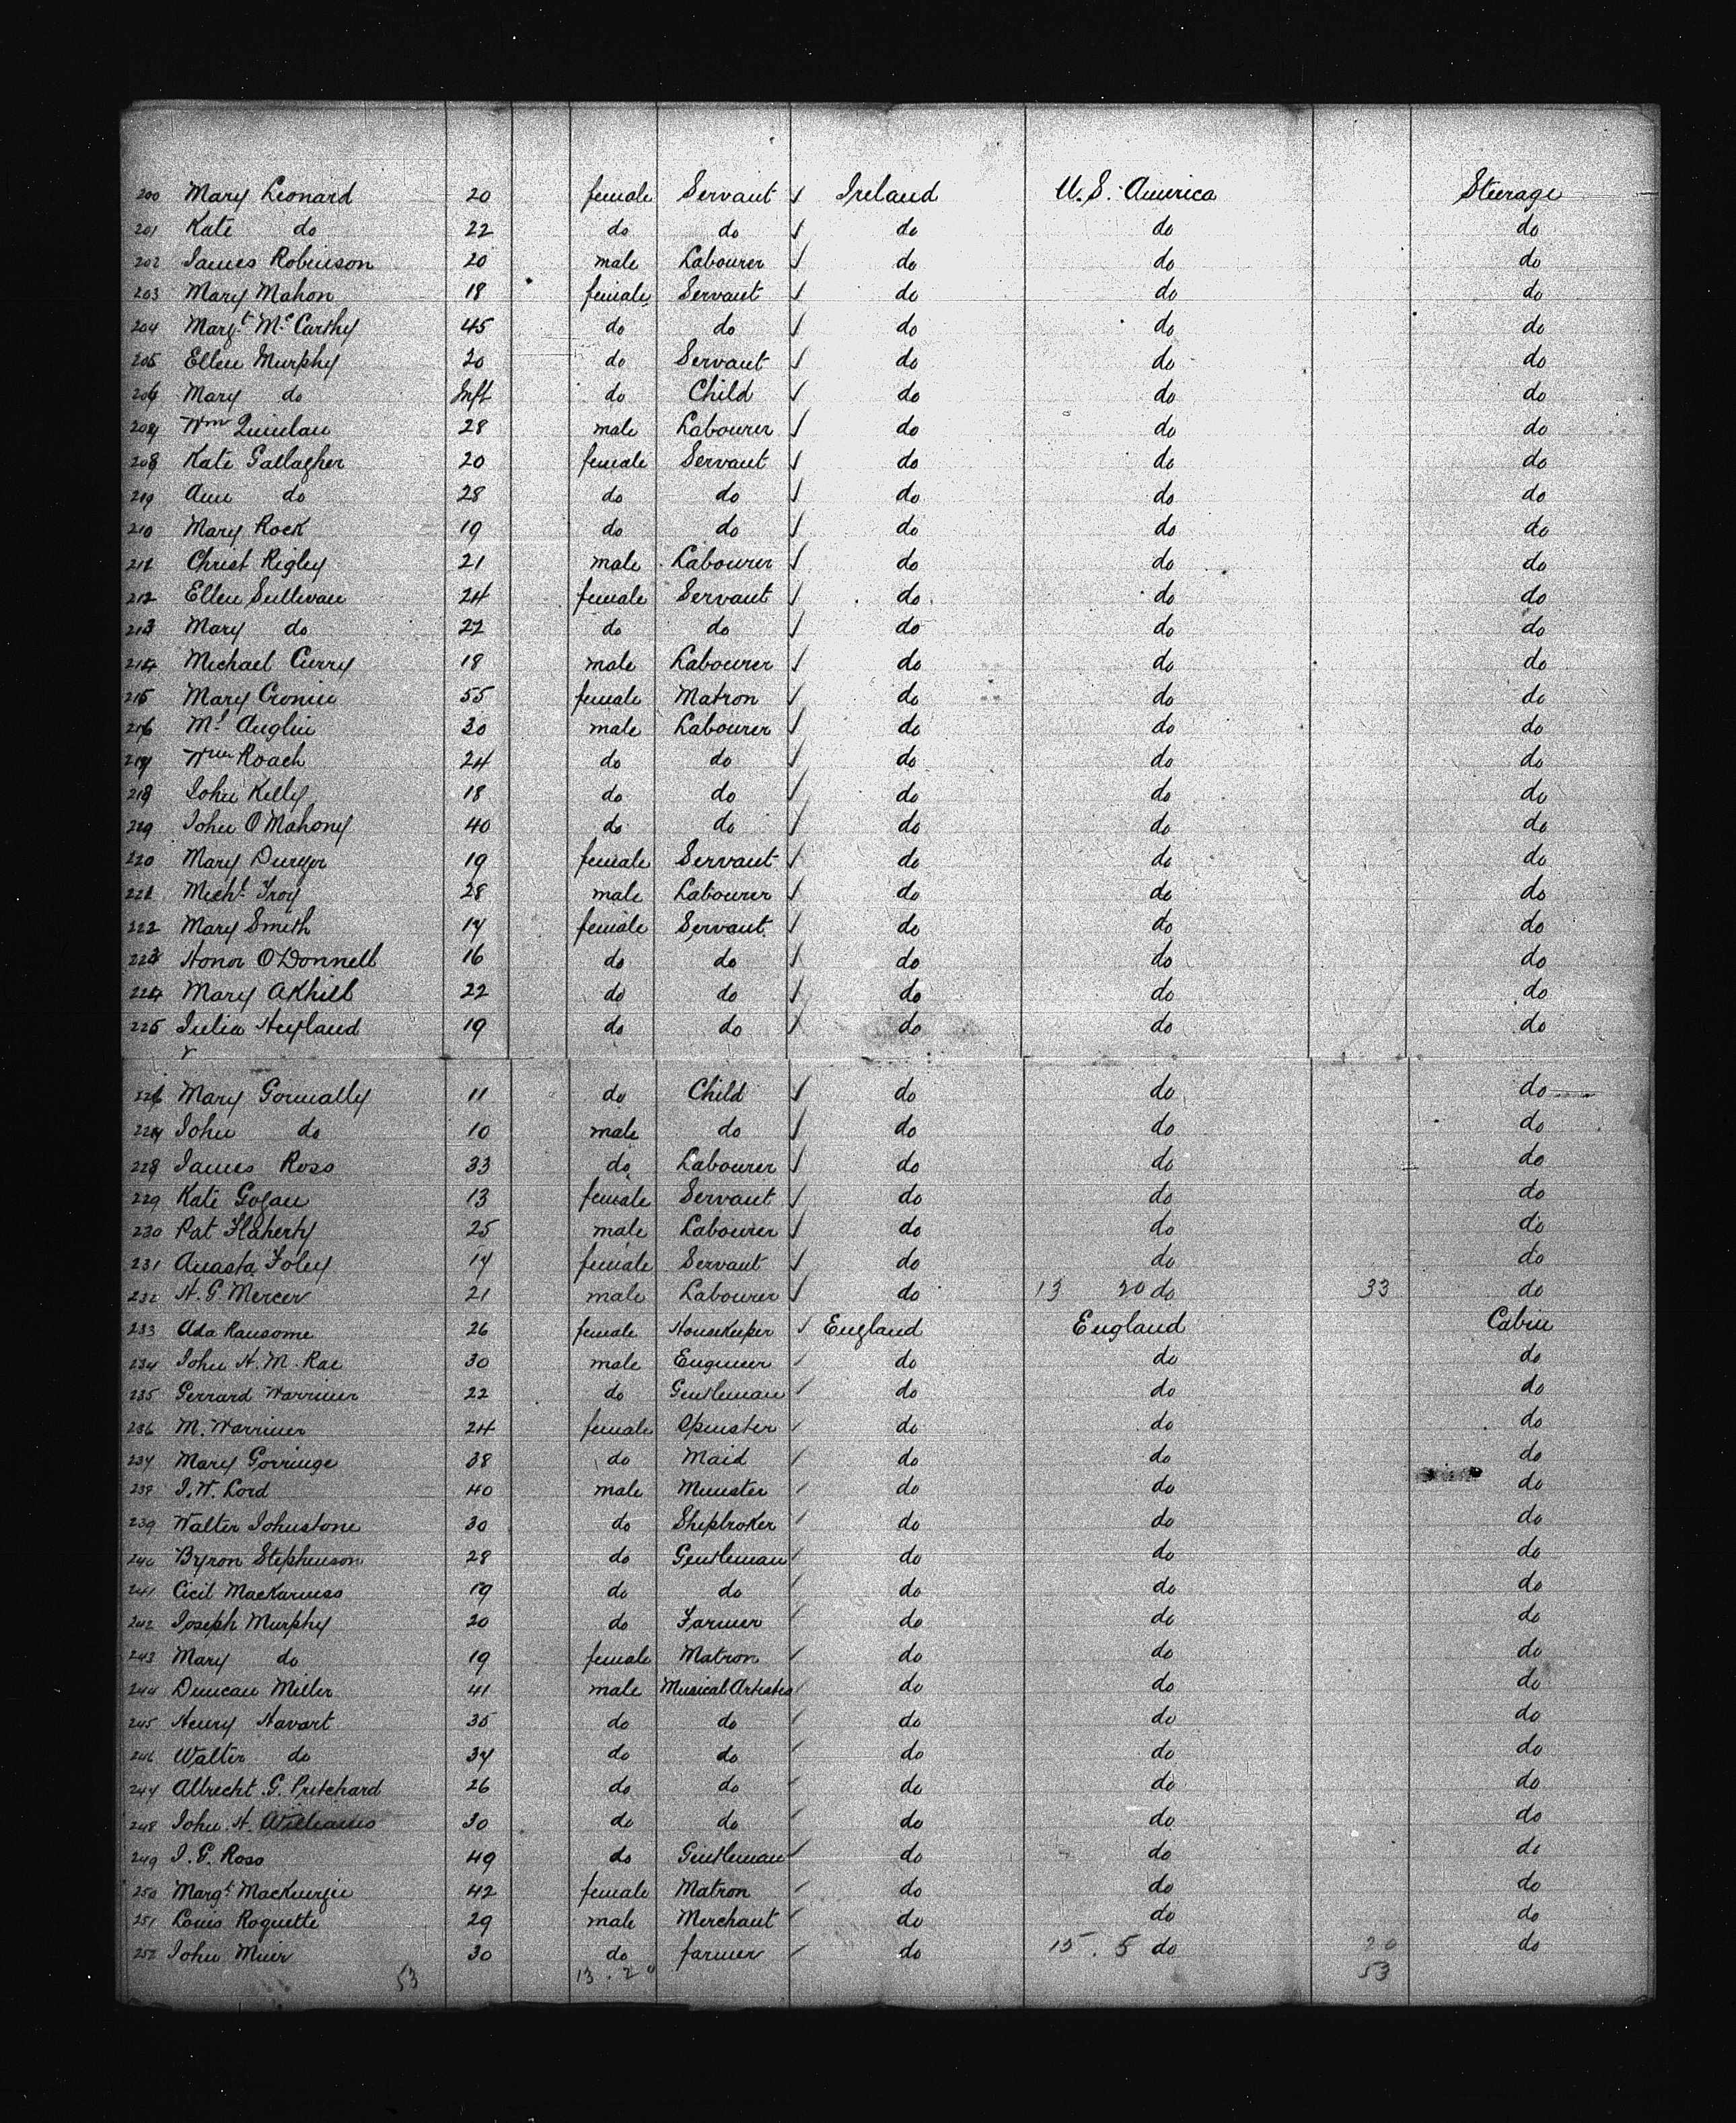 200 Mary Leonard 20 female Servant Ireland U.S. America Steerage
201 Kate do 22 do do do do do
202 James Robinson 20 male Labourer do do do
203 Mary Mahon 18 female Servant do do do
204 Margt McCarthy 45 do do do do do
205 Ellen Murphy 20 do Servant do do do
206 Mary do Inft do Child do do do
207 Wm Quinlan 28 male Labourer do do do
208 Kate Gallagher 20 female Servant do do do
219 Ann do 28 do do do do do
210 Mary Rock 19 do do do do do
211 Christ Rigley 21 male Labourer do do do
212 Ellen Sullivan 24 female Servant do do do
213 Mary do 22 do do do do do
214 Michael Curry 18 male Labourer do do do
215 Mary Cronin 55 female Matron do do do
216 Ml Anglin 30 male Labourer do do do
217 Wm Roach 24 do do do do do
218 John Kelly 18 do do do do do
219 John O'Mahony 40 do do do do do
220 Mary Dwyer 19 female Servant do do do
221 Michl Troy 28 male Labourer do do do
222 Mary Smith 17 female Servant do do do
223 Honor O'Donnell 16 do do do do do
224 Mary Akhill 22 do do do do do
225 Julia Heyland 19 do do do do do
226 Mary Gormally 11 do Child do do do
227 John do 10 male do do do do
228 James Ross 33 do Labourer do do do
229 Kate Gogan 13 female Servant do do do
230 Pat Flaherty 25 male Labourer do do do
231 Anasta Foley 17 female Servant do do do
232 H. G. Mercer 21 male Labourer do 13 20 do 33 do
233 Ada Ransome 26 female Housekeeper England England Cabin
234 John H. M. Rae 30 male Engineer do do do
235 Gerrard Warriner 22 do Gentleman do do do
236 M. Warriner 24 female Spinster do do do
237 Mary Gorringe 38 do Maid do do do
238 J. W. Lord 40 male Minister do do do
239 Walter Johnstone 30 do Shipbroker do do do
240 Byron Stephenson 28 do Gentleman do do do
241 Cecil Mackarness 19 do do do do do
242 Joseph Murphy 20 do Farmer do do do
243 Mary do 19 female Matron do do do
244 Duncan Miller 41 male Musical Artistes do do do
245 Henry Havart 35 do do do do do
246 Walter do 37 do do do do do
247 Albrecht G. Pritchard 26 do do do do do
248 John H. Williams 30 do do do do do
249 J. G. Ross 49 do Gentleman do do do
250 Margt Mackenzie 42 female Matron do do do
251 Louis Roquette 29 male Merchant do do do
252 John Muir 30 do farmer do 15. 5 do 20 do
53 13. 20 53